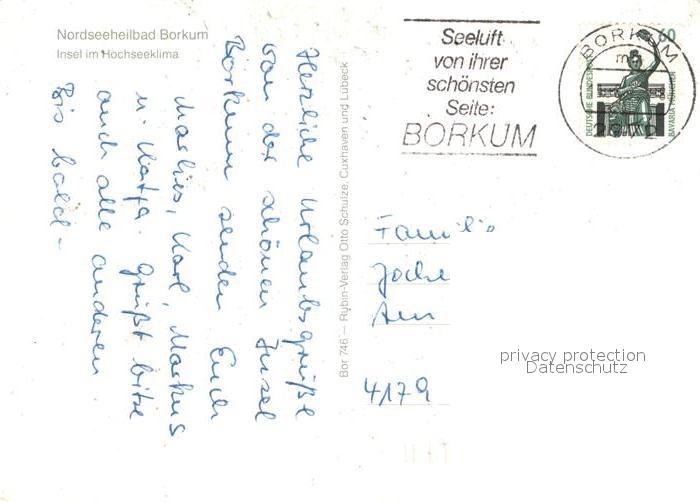 Nordseeheilbad Borkum
Insel im Hochseeklima
Herzliche Urlaubsgrüße
von der schönen Insel
Borkum senden Euch
Marlies, Karl, Markus
u. Katja. Grüßt bitte
auch alle anderen.
Bis bald -
Bor 746 — Rubin-Verlag Otto Schulze, Cuxhaven und Lübeck
Seeluft
von ihrer
schönsten
Seite:
BORKUM
BORKUM
60
DEUTSCHE BUNDESPOST
BAVARIA MÜNCHEN
Familie
Joche
4179
privacy protection
Datenschutz